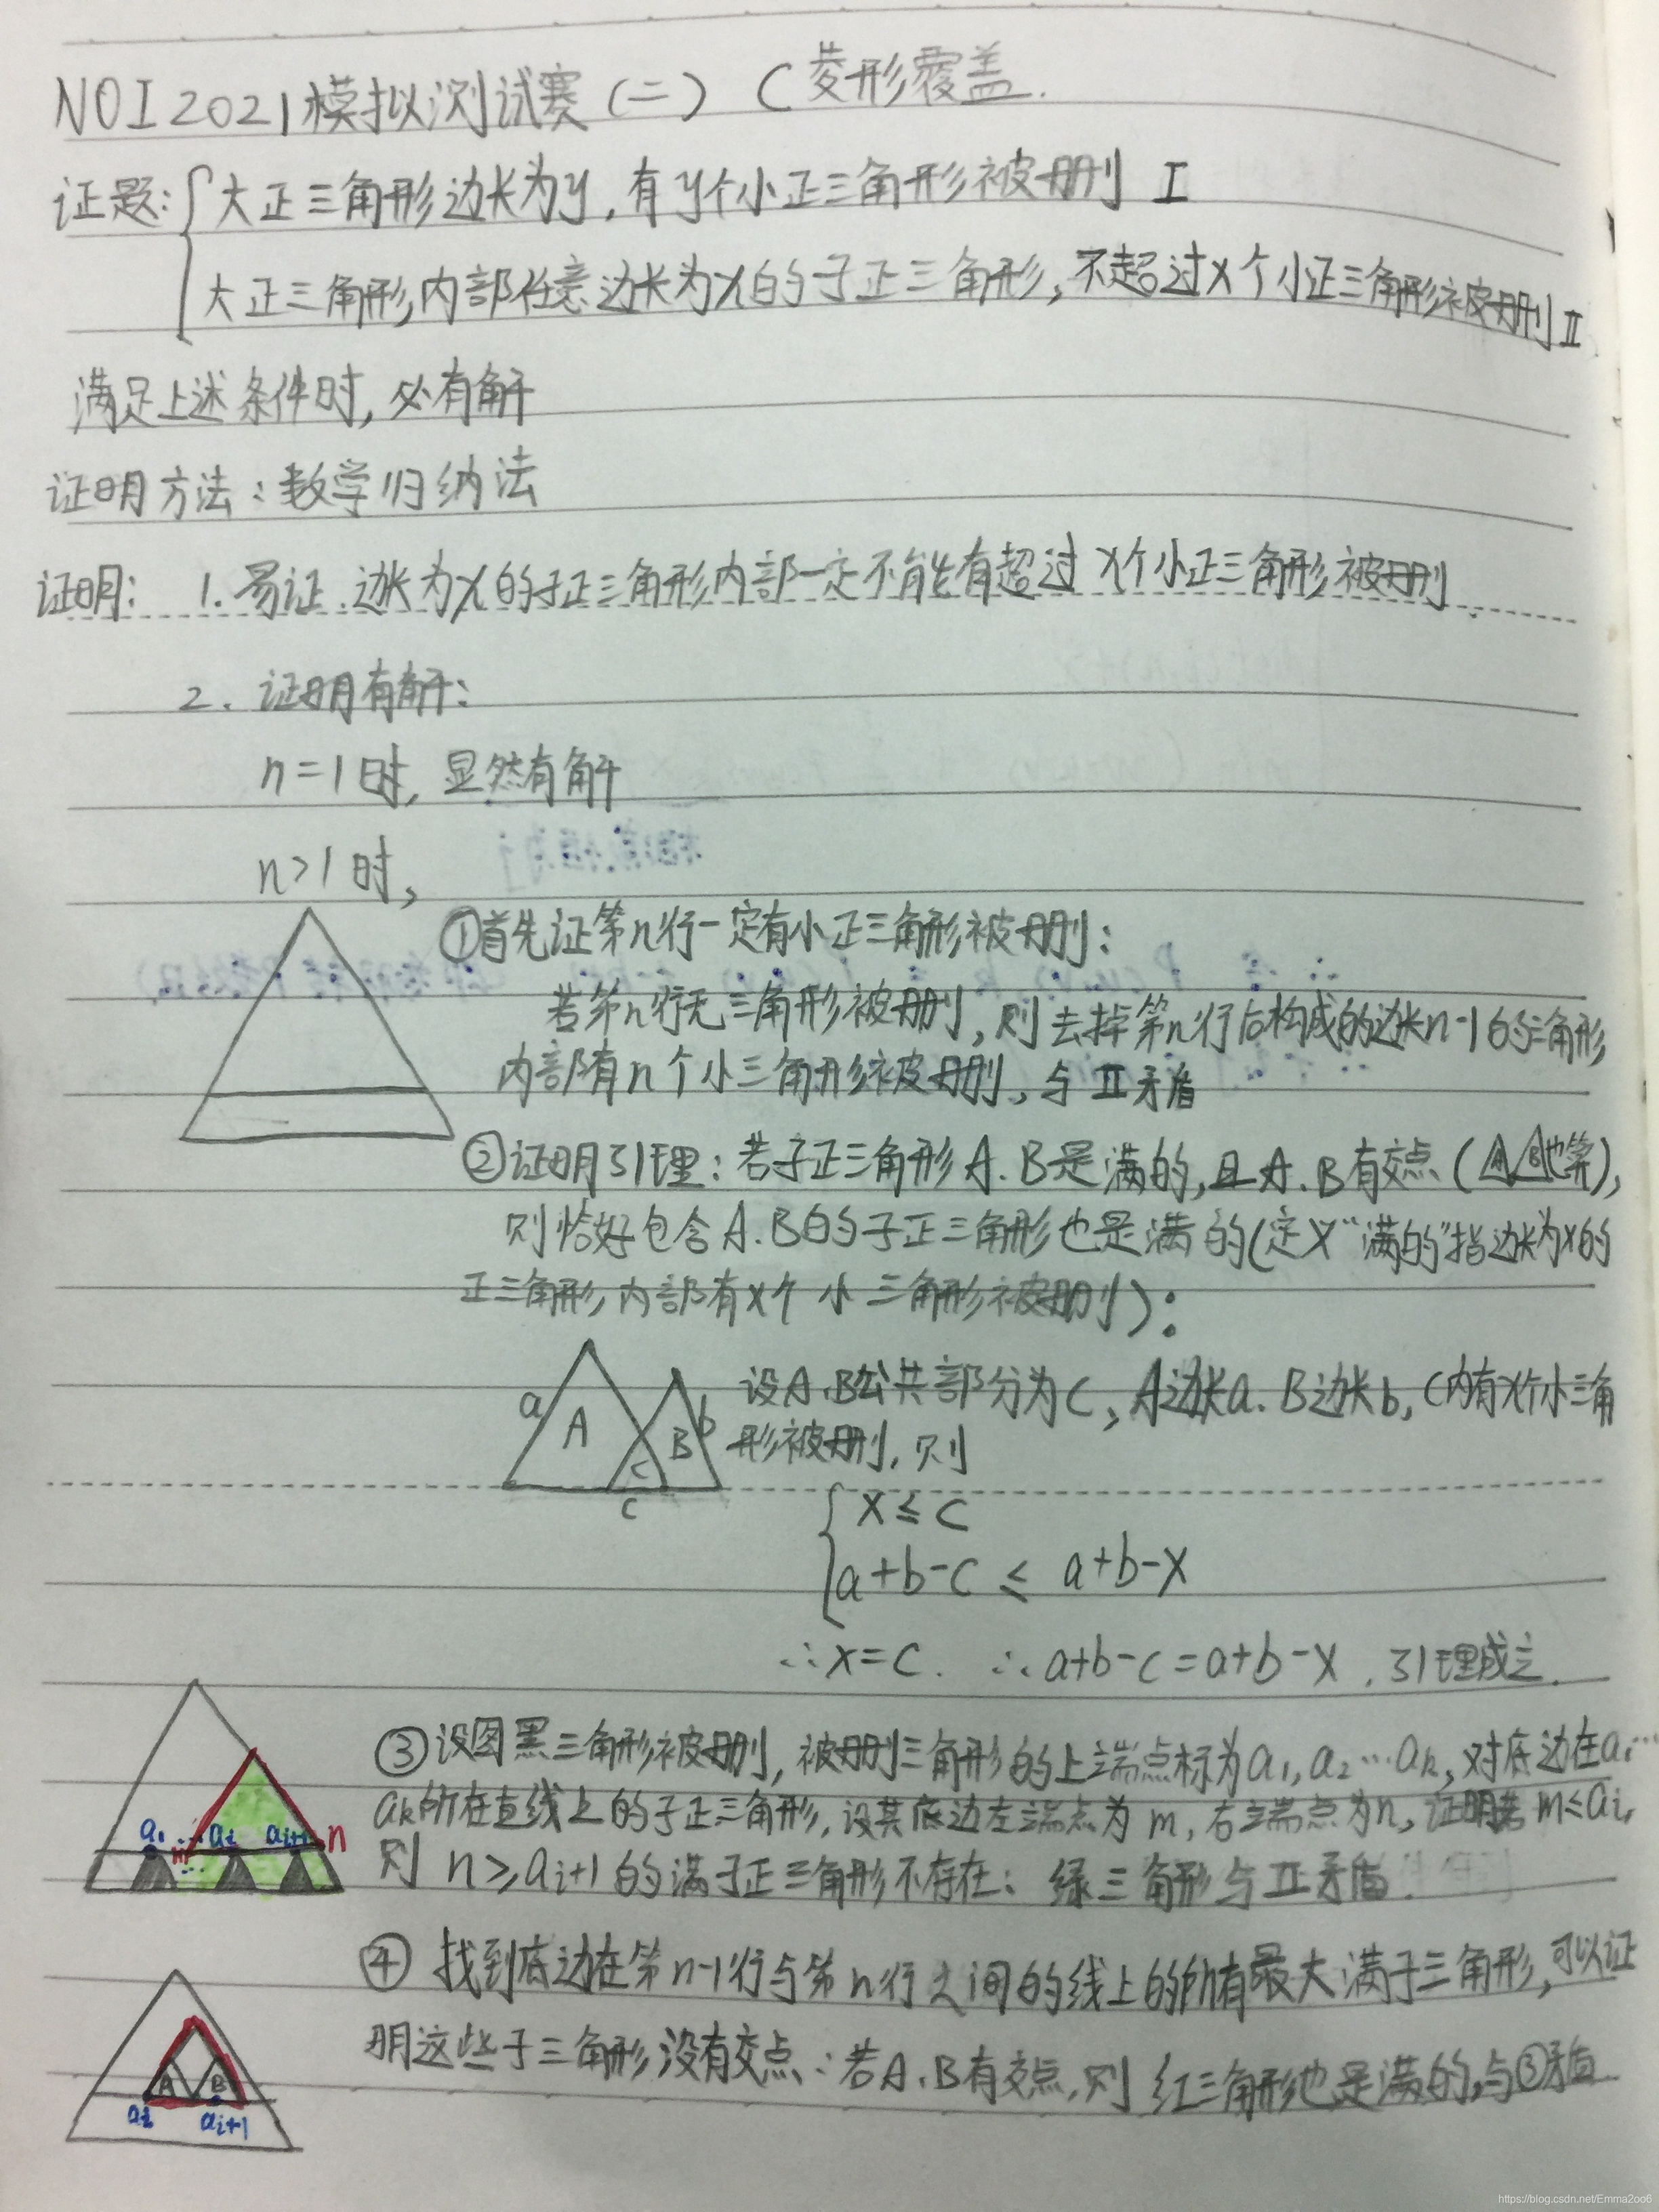 NOI2021模拟测试赛(二) C 菱形覆盖.
证题: 大正三角形边长为y, 有y个小正三角形被删 I
大正三角形内部任意边长为x的子正三角形, 不超过x个小正三角形被删 II
满足上述条件时, 必有解
证明方法: 数学归纳法
证明: 1. 易证. 边长为x的子正三角形内部一定不能有超过x个小正三角形被删.
2. 证明有解:
n=1时, 显然有解
n>1时,
①首先证第n行一定有小正三角形被删:
若第n行无三角形被删, 则去掉第n行后构成的边长n-1的三角形
内部有n个小三角形被删, 与II矛盾
②证明引理: 若子正三角形A.B是满的, 且A.B有交点(A B也算),
则恰好包含A.B的子正三角形也是满的(定义"满的"指边长为x的
正三角形内部有x个小三角形被删):
a A B b
C
c
设A.B公共部分为C, A边长a. B边长b, C内有x个小三角
形被删, 则
x≤c
a+b-c ≤ a+b-x
∴x=c. ∴a+b-c=a+b-x. 引理成立.
③设图黑三角形被删, 被删三角形的上端点标为a1, a2…ak, 对底边在a1…
ak所在直线上的子正三角形, 设其底边左端点为m, 右端点为n, 证明若m≤ai,
则 n≥ai+1的满子正三角形不存在: 绿三角形与II矛盾.
a1 m … ai ai+1 n
④ 找到底边在第n-1行与第n行之间的线上的所有最大满子三角形, 可以证
明这些子三角形没有交点: 若A.B有交点, 则 红三角形也是满的, 与③矛盾
A B
ai ai+1
https://blog.csdn.net/Emma2oo6